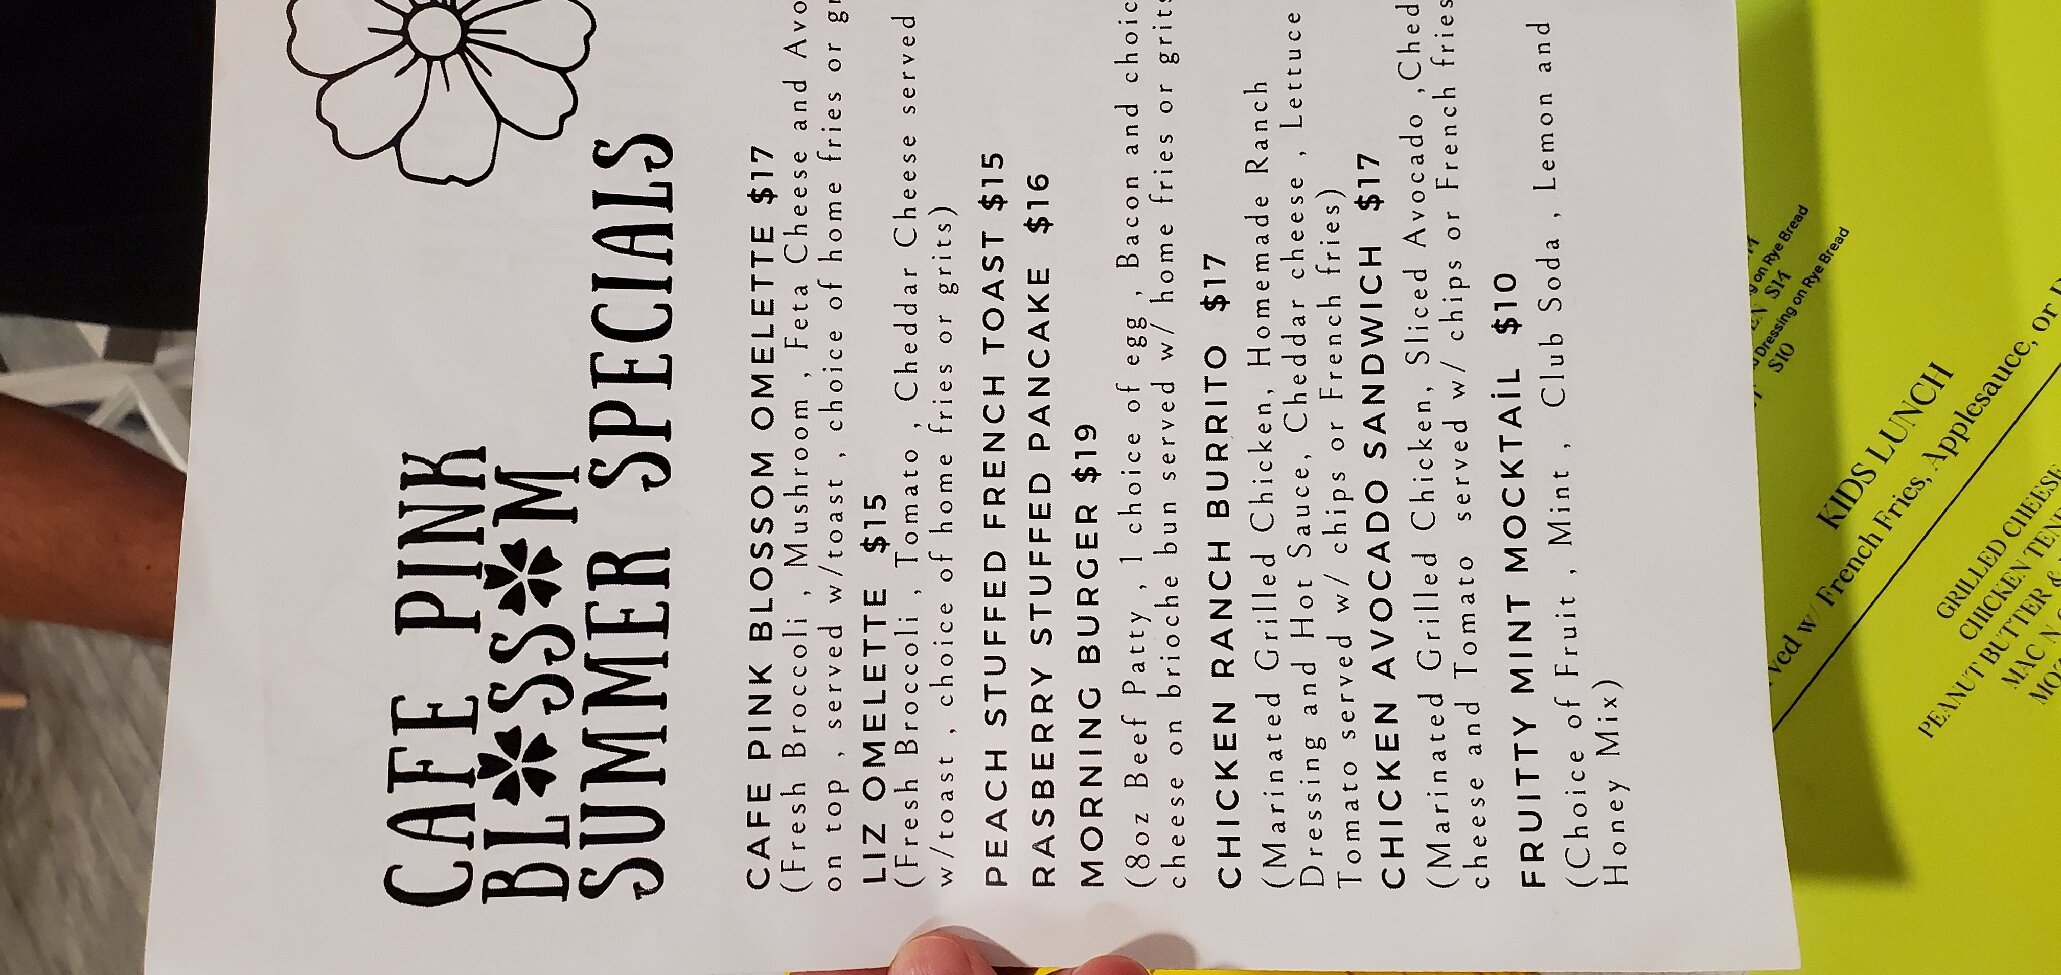 CAFE PINK
BLOSSOM
SUMMER SPECIALS
CAFE PINK BLOSSOM OMELETTE $17
(Fresh Broccoli , Mushroom , Feta Cheese and Avo
on top , served w/toast , choice of home fries or gr
LIZ OMELETTE $15
(Fresh Broccoli , Tomato , Cheddar Cheese served
w/toast , choice of home fries or grits)
PEACH STUFFED FRENCH TOAST $15
RASBERRY STUFFED PANCAKE $16
MORNING BURGER $19
(8oz Beef Patty , 1 choice of egg , Bacon and choic
cheese on brioche bun served w/ home fries or grits
CHICKEN RANCH BURRITO $17
(Marinated Grilled Chicken, Homemade Ranch
Dressing and Hot Sauce, Cheddar cheese , Lettuce
Tomato served w/ chips or French fries)
CHICKEN AVOCADO SANDWICH $17
(Marinated Grilled Chicken, Sliced Avocado ,Ched
cheese and Tomato served w/ chips or French fries
FRUITTY MINT MOCKTAİL $10
(Choice of Fruit , Mint , Club Soda , Lemon and
Honey Mix)
on Rye Bread
$14
Dressing on Rye Bread
$10
KIDS LUNCH
ved w/ French Fries, Applesauce, or
GRILLED CHEESE
CHICKEN TEN
PEANUT BUTTER &
MAC N